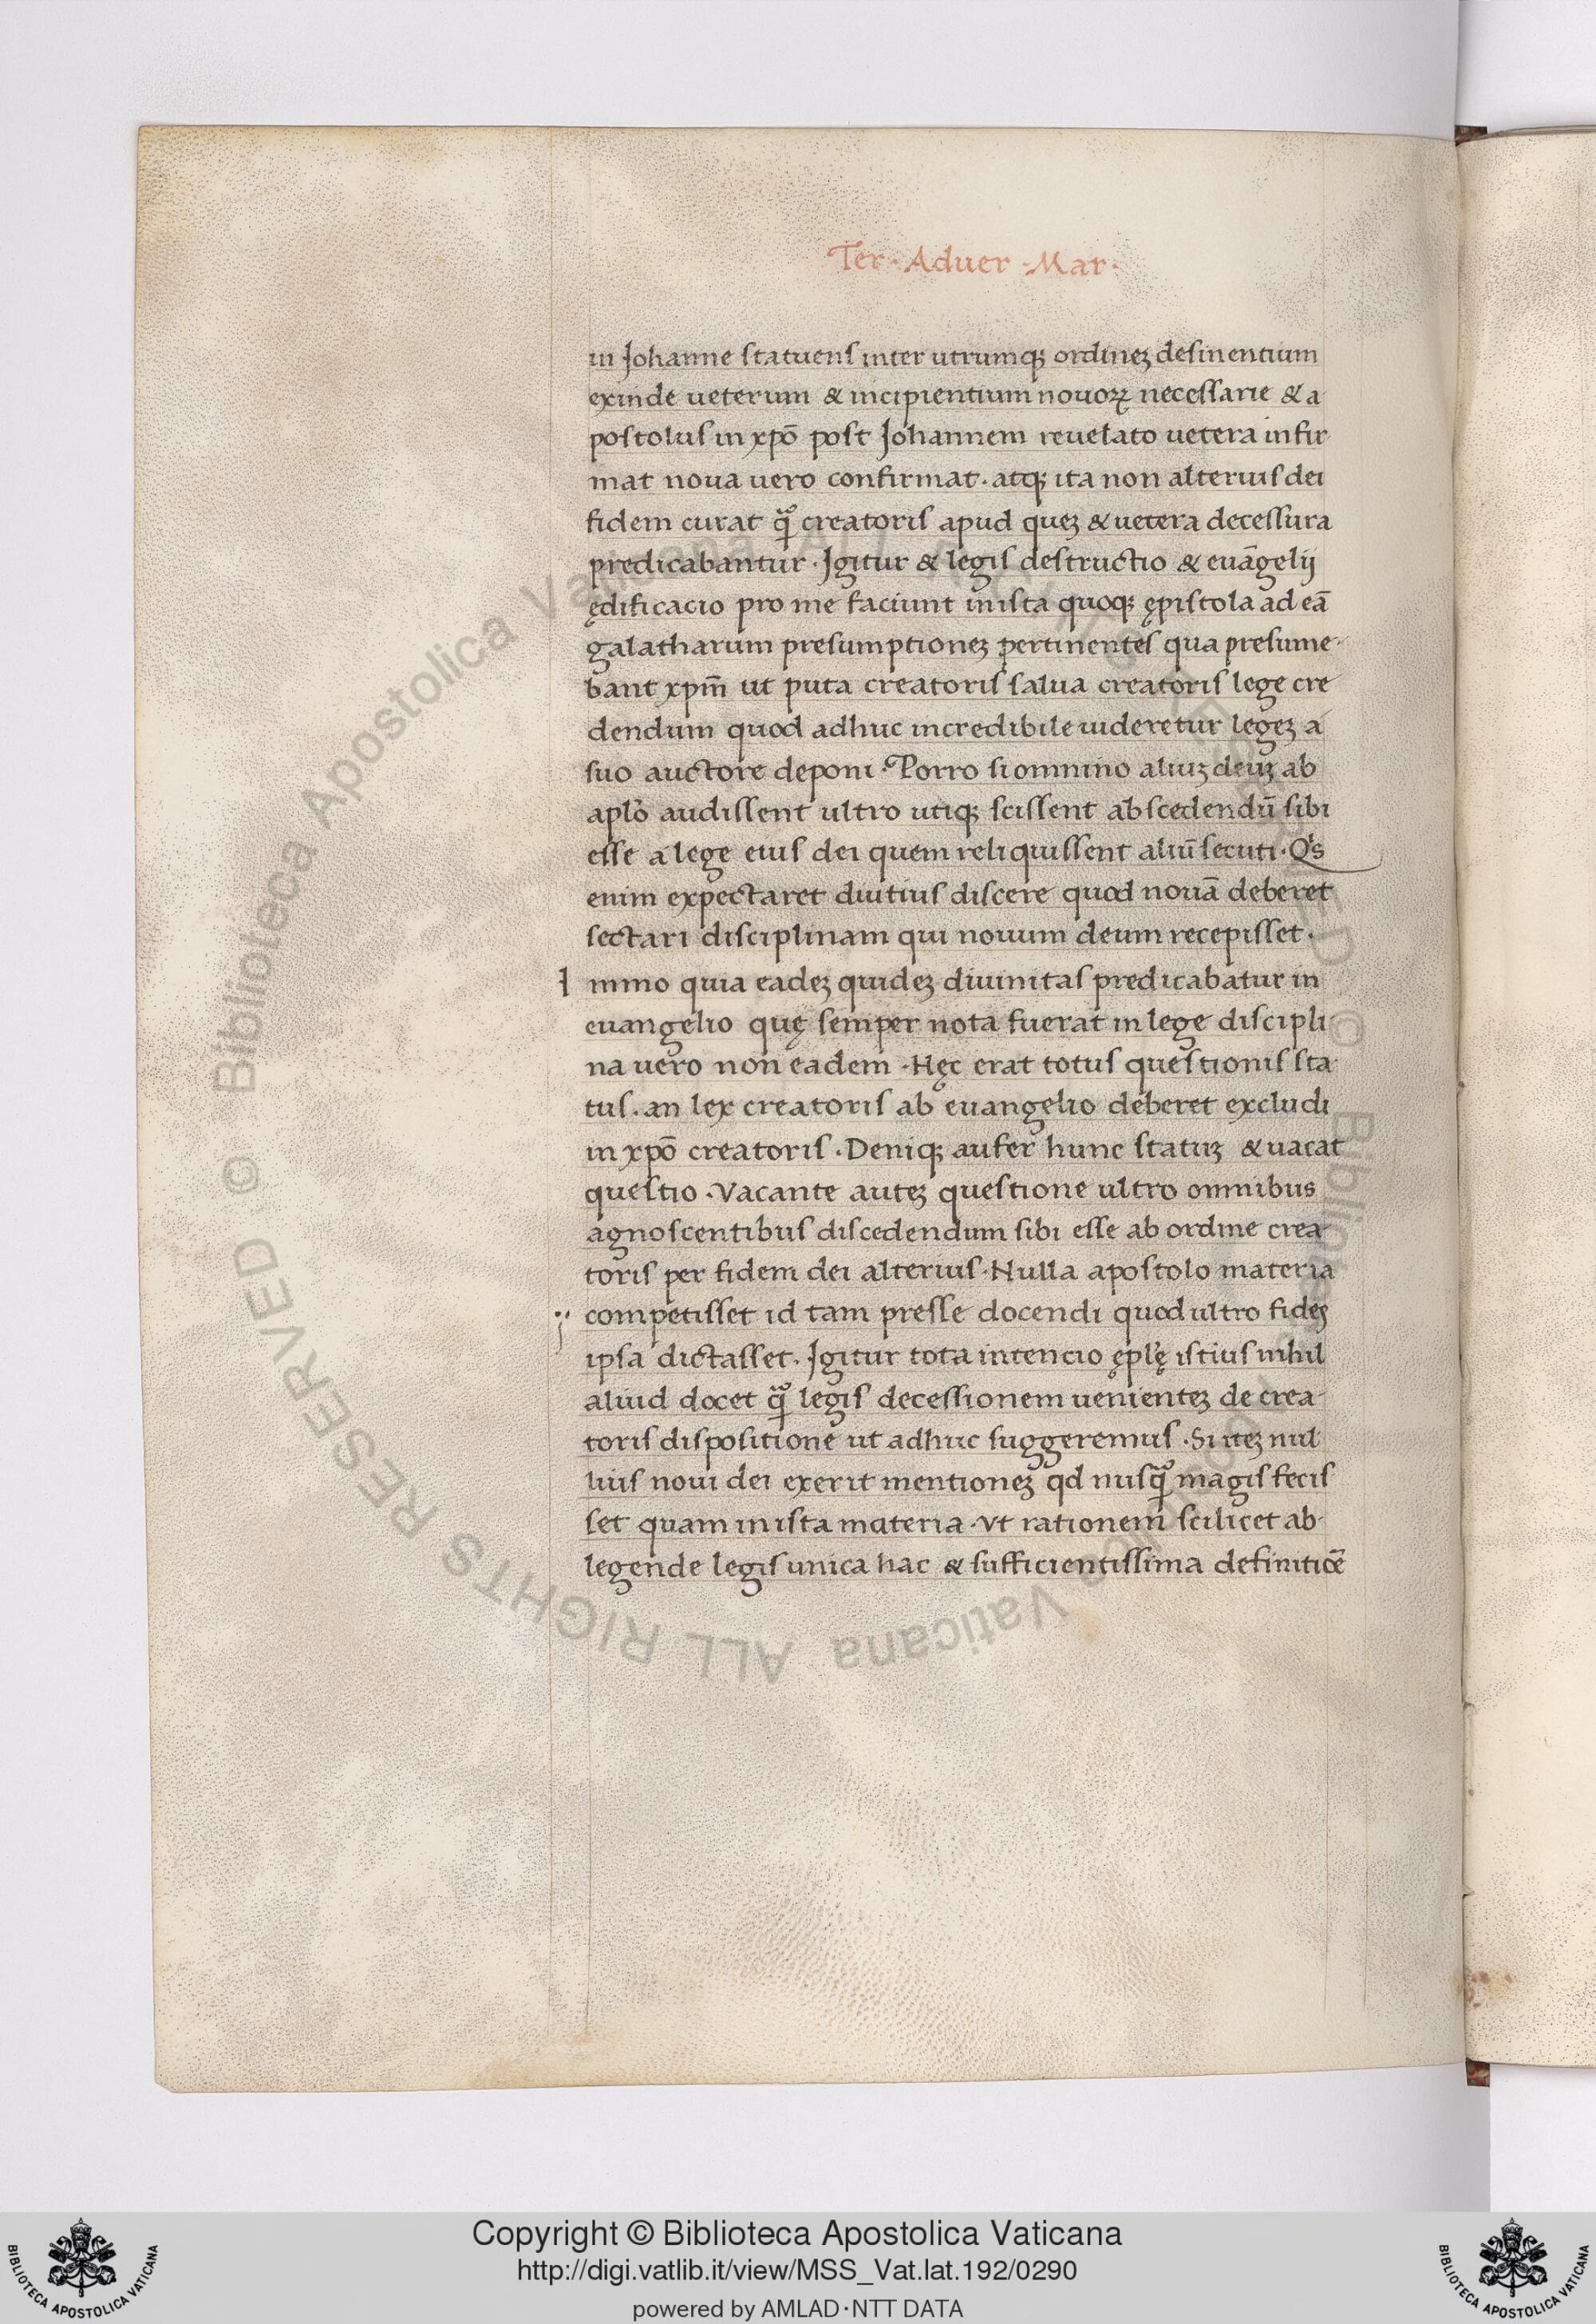 Ter · Aduer · Mar ·
in Johanne statuens inter utrumqꝫ ordineꝫ desinentium
exinde ueterum & incipientium nouoꝝ necessarie & a
postolus in xpō post Johannem reuelato uetera infir
mat noua uero confirmat · atqꝫ ita non alterius dei
fidem curat qͣꝫ creatoris apud queꝫ & uetera decessura
predicabantur · Jgitur & legis destructio & euāgelij
ędificacio pro me faciunt in ista quoqꝫ ępistola ad eā
galatharum presumptioneꝫ pertinentes qua presume-
bant xpm̄ ut puta creatoris salua creatoris lege cre
dendum quod adhuc incredibile uideretur legeꝫ a
suo auctore deponi · Porro si omnino aliuꝫ deuꝫ ab
aplo audissent ultro utiqꝫ scissent abscedendū sibi
esse a lege eius dei quem reliquissent aliū secuti · Qͥs
enim expectaret diutius discere quod nouā deberet
sectari disciplinam qui nouum deum recepisset ·
I mmo quia eadeꝫ quideꝫ diuinitas predicabatur in
euangelio quę semper nota fuerat in lege discipli
na uero non eadem · Hęc erat totus questionis sta
tus · an lex creatoris ab euangelio deberet excludi
in xpō creatoris · Deniqꝫ aufer hunc statuꝫ & uacat
questio · Vacante auteꝫ questione ultro omnibus
agnoscentibus discedendum sibi esse ab ordine crea
toris per fidem dei alterius · Nulla apostolo materia
competisset id tam presse docendi quod ultro fides
ipsa dictasset · Jgitur tota intencio ęplę istius nihil
aliud docet qͣꝫ legis decessionem uenienteꝫ de crea-
toris dispositione ut adhuc suggeremus · Si iteꝫ nul
lius noui dei exerit mentioneꝫ qd nusqͣꝫ magis fecis
set quam in ista materia · Vt rationem scilicet ab-
legende legis unica hac & sufficientissima definitiōe
© Biblioteca Apostolica Vaticana ALL RIGHTS RESERVED © Biblioteca Apostolica Vaticana ALL RIGHTS RESERVED
Copyright © Biblioteca Apostolica Vaticana
http://digi.vatlib.it/view/MSS_Vat.lat.192/0290
powered by AMLAD·NTT DATA
BIBLIOTECA APOSTOLICA VATICANA
BIBLIOTECA APOSTOLICA VATICANA